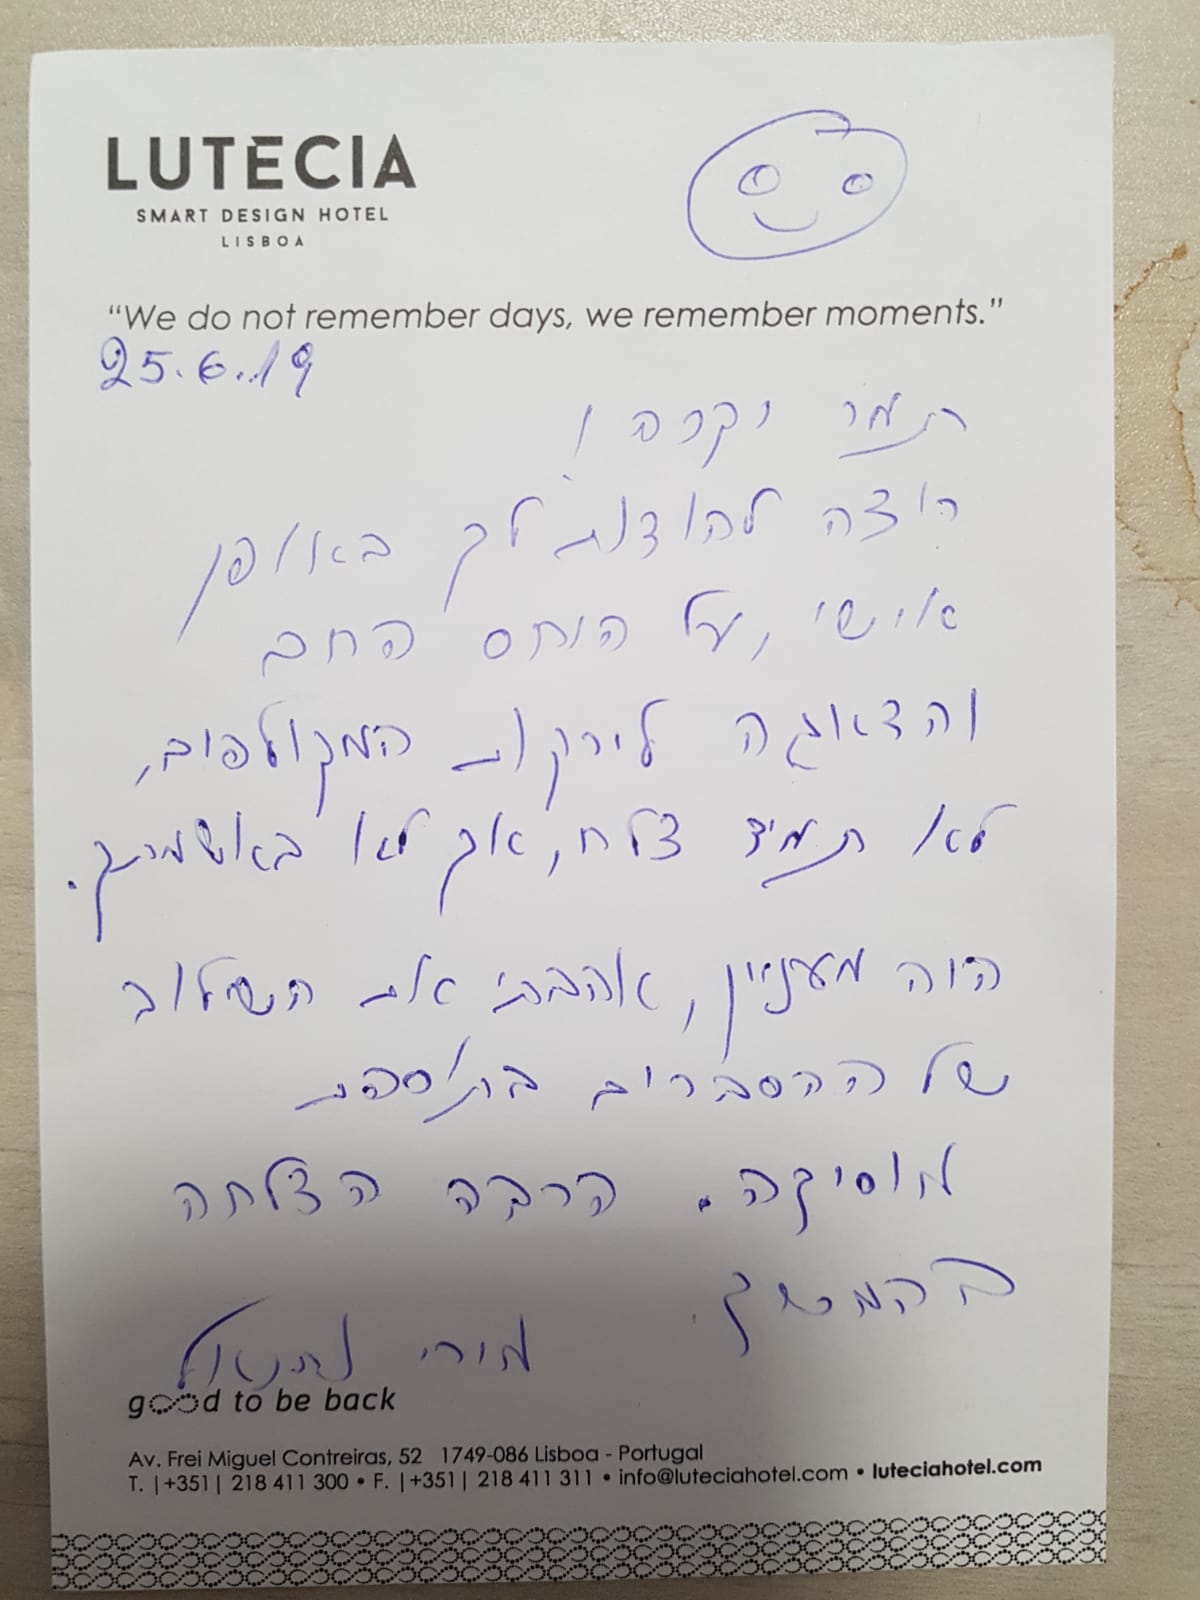 LUTECIA
SMART DESIGN HOTEL
LISBOA
“We do not remember days, we remember moments.”
25.6.19
תמר יקרה!
רוצה להודות לך באופן
אישי, על היחס החם
והדאגה לירקות המקולפים,
לא תמיד צלח, אך לא באשמתך.
היה מעניין, אהבתי את השילוב
של ההסברים בתוספת
מוסיקה. הרבה הצלחה
בהמשך.
מורי נתנאל
good to be back
Av. Frei Miguel Contreiras, 52 1749-086 Lisboa - Portugal
T. |+351| 218 411 300 • F. |+351| 218 411 311 • info@luteciahotel.com • luteciahotel.com